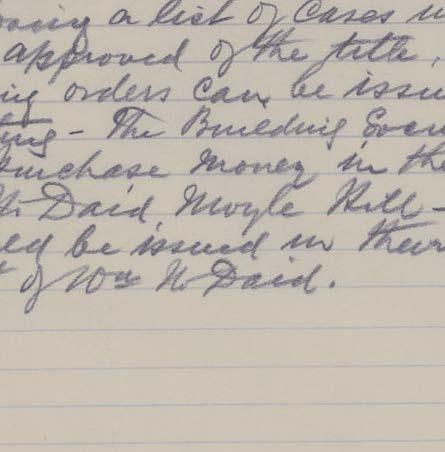 a list of Cases
approved of the title,
orders can be issu
ing - The Building Socu
urchase money in the
McDaid Moyle Hill -
ld be issued in their
of Wm McDaid.